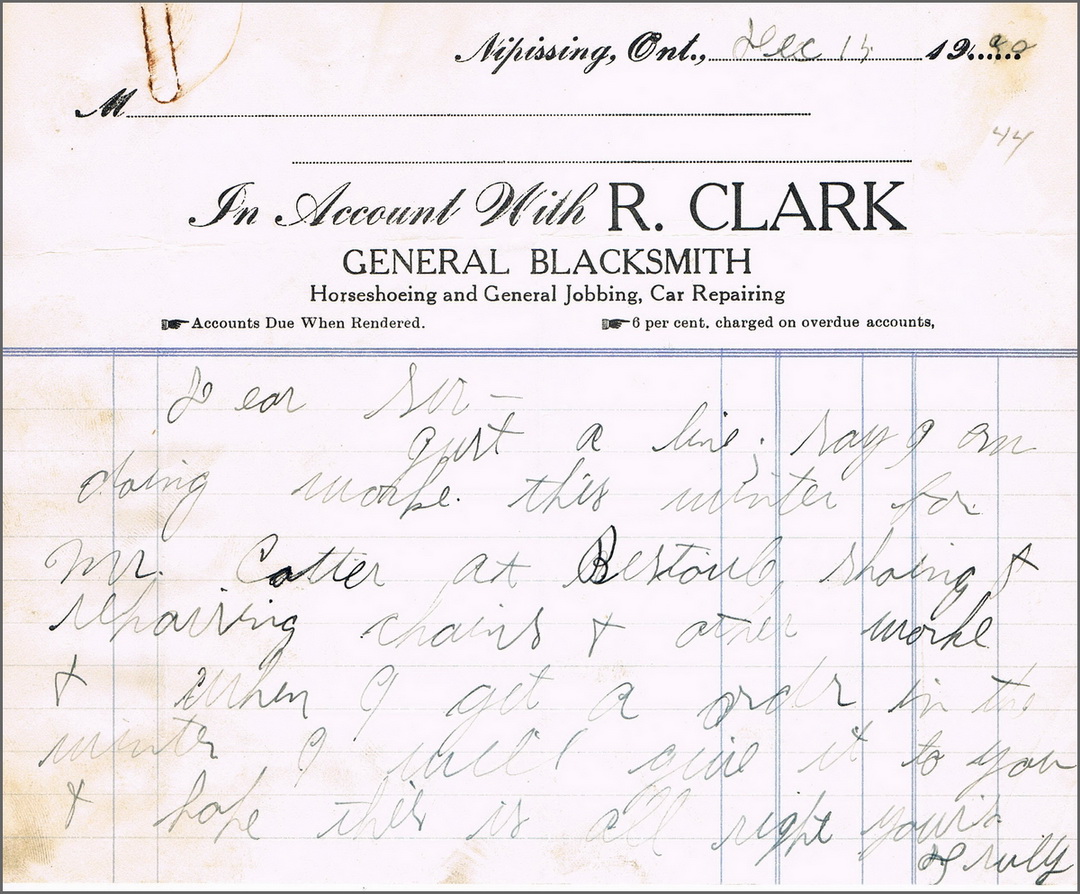 Nipissing, Ont., Dec 14 19
M
44
In Account With R. CLARK
GENERAL BLACKSMITH
Horseshoeing and General Jobbing, Car Repairing
Accounts Due When Rendered. 6 per cent. charged on overdue accounts,
Dear Sir –
Just a line; say I am
doing worke this winter for
Mr. Cotter at shoing &
repairing chains & other worke
& when I get a order in the
winter I will give it to you
& hope this is all right yours
truly